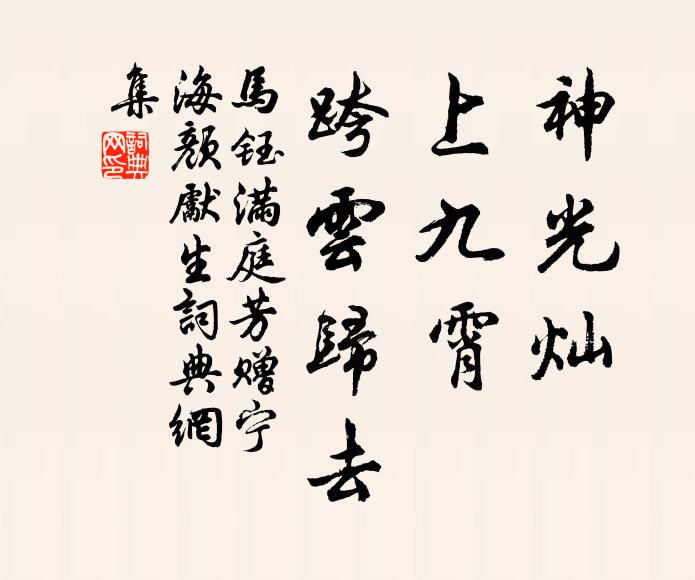 神光灿
上九霄
跨雲歸去
馬鈺滿庭芳赠宁
海顏獻生詞典網
集
詞典网印